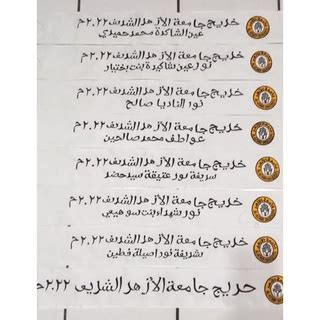 خريج جامعة الأزهر الشريف ٢٠٢٢م
عين الشاكرة محمد حميدي
خريج جامعة الأزهر الشريف ٢٠٢٢م
نور عين شاكيرة بنت بختيار
خريج جامعة الأزهر الشريف ٢٠٢٢م
نور الناديا صالح
خريج جامعة الأزهر الشريف ٢٠٢٢م
عواطف محمد صالحين
خريج جامعة الأزهر الشريف ٢٠٢٢م
شريفة نور عتيقة سيد حضر
خريج جامعة الأزهر الشريف ٢٠٢٢م
نور شهداء بنت سوهيمي
خريج جامعة الأزهر الشريف ٢٠٢٢م
شريفة نور اصيلة فطين
خريج جامعة الأزهر الشريف ٢٠٢٢م